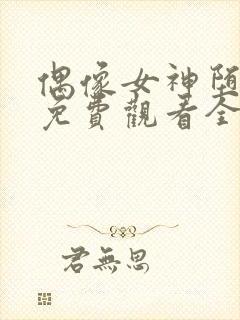 偶像女神堕
免費觀看全
君無思